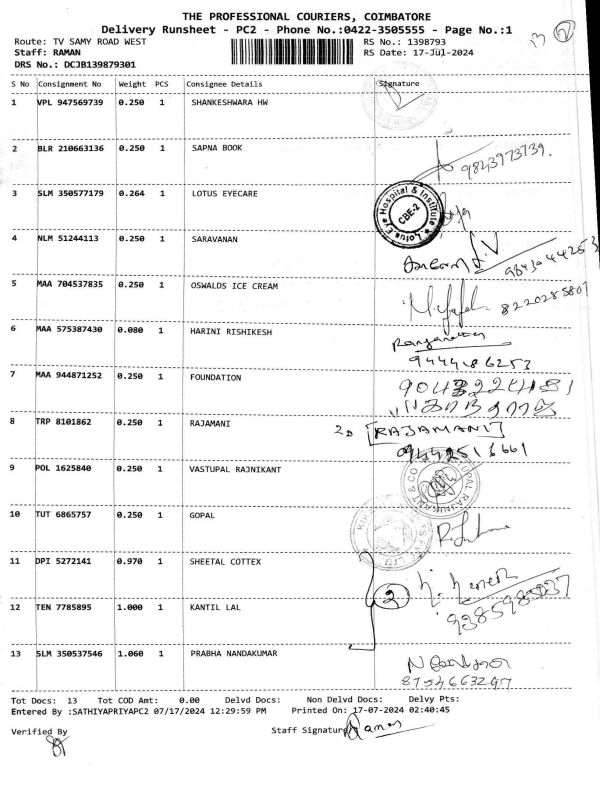 THE PROFESSIONAL COURIERS, COIMBATORE
Delivery Runsheet - PC2 - Phone No.:0422-3505555 - Page No.:1
Route: TV SAMY ROAD WEST RS No.: 1398793
Staff: RAMAN RS Date: 17-Jul-2024
DRS No.: DCJB139879301
S No Consignment No Weight PCS Consignee Details Signature
1 VPL 947569739 0.250 1 SHANKESHWARA HW
2 BLR 210663136 0.250 1 SAPNA BOOK
9843973739.
3 SLM 350577179 0.264 1 LOTUS EYECARE
Lotus Eye Hospital & Institute
CBE-2
4 NLM 51244113 0.250 1 SARAVANAN
5 MAA 704537835 0.250 1 OSWALDS ICE CREAM
8220285807
6 MAA 575387430 0.080 1 HARINI RISHIKESH
9444186253
7 MAA 944871252 0.250 1 FOUNDATION
8 TRP 8101862 0.250 1 RAJAMANI
[RAJAMANI]
9 POL 1625840 0.250 1 VASTUPAL RAJNIKANT
10 TUT 6865757 0.250 1 GOPAL
11 DPI 5272141 0.970 1 SHEETAL COTTEX
2
12 TEN 7785895 1.000 1 KANTIL LAL
13 SLM 350537546 1.060 1 PRABHA NANDAKUMAR
8754663247
Tot Docs: 13 Tot COD Amt: 0.00 Delvd Docs: Non Delvd Docs: Delvy Pts:
Entered By :SATHIYAPRIYAPC2 07/17/2024 12:29:59 PM Printed On: 17-07-2024 02:40:45
Verified By Staff Signature Raman